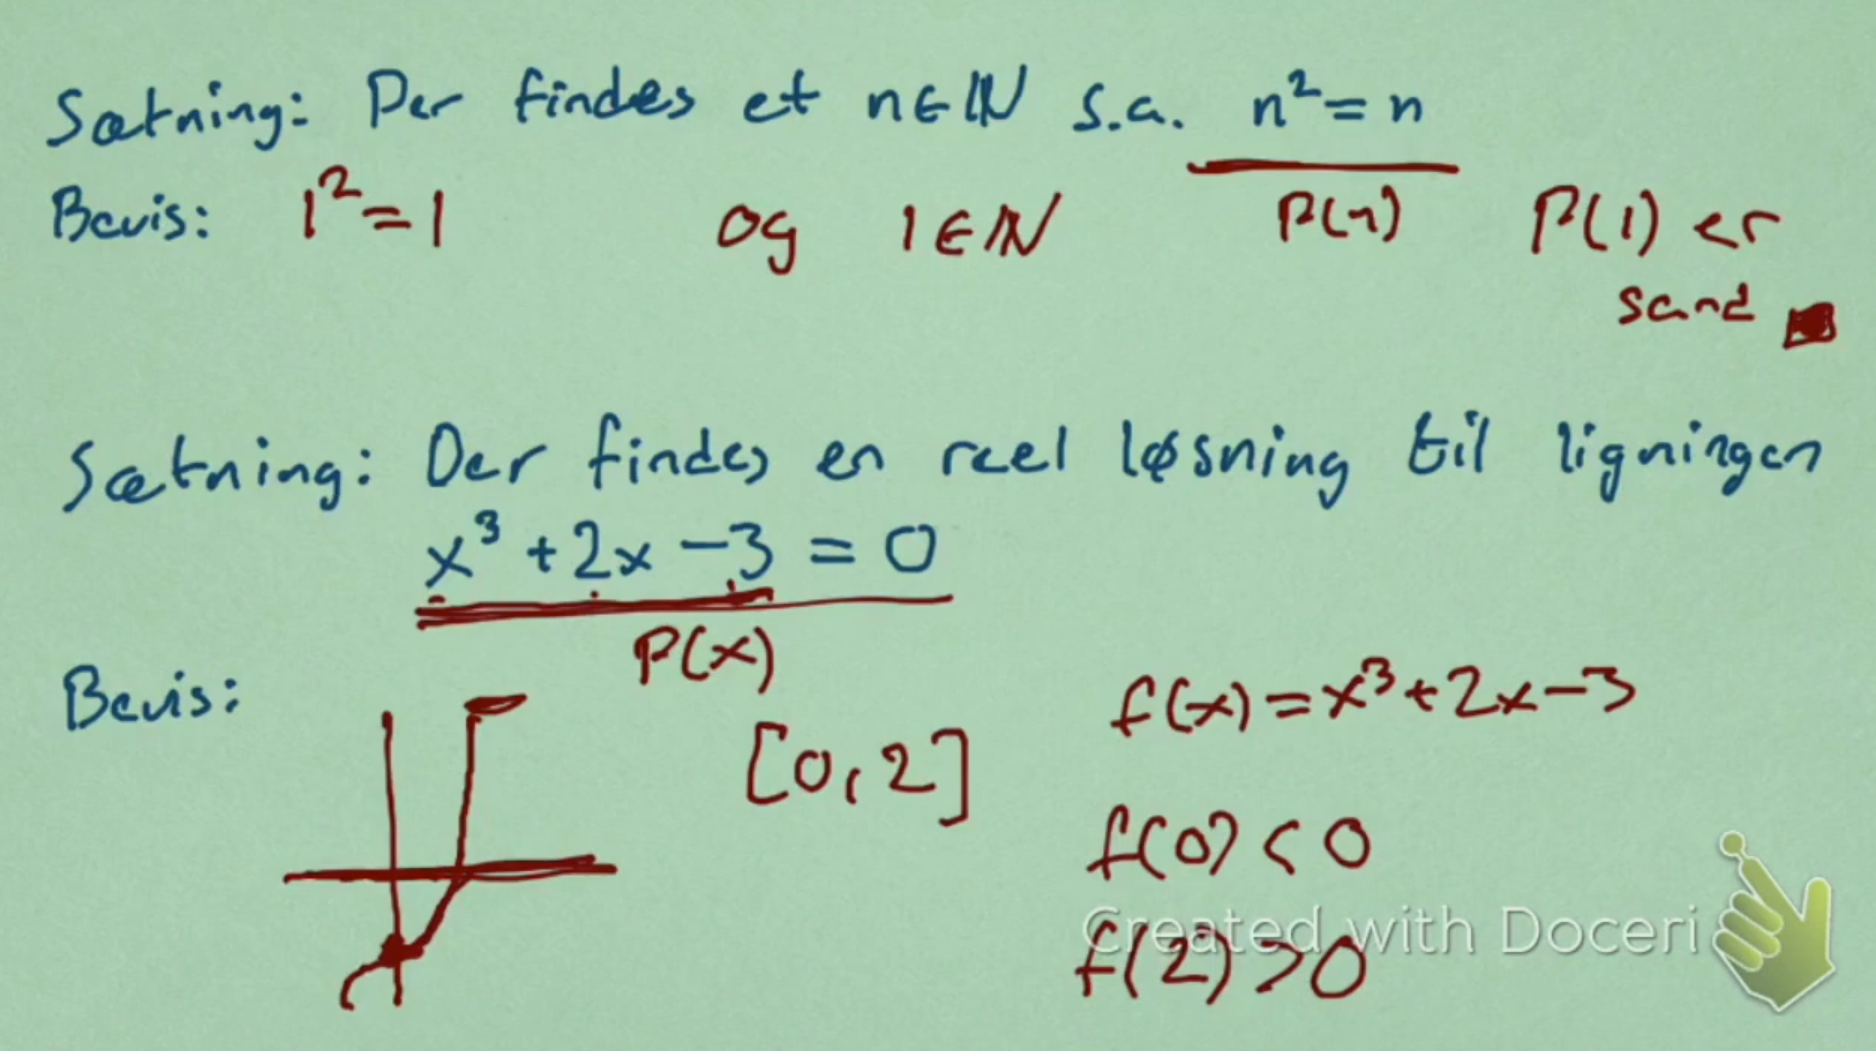 Sætning: Der findes et n∈ℕ s.a. n² = n
P(n)
Bevis: 1² = 1 og 1∈ℕ P(1) er
sand ■
Sætning: Der findes en reel løsning til ligningen
x³ + 2x - 3 = 0
P(x)
Bevis:
f(x) = x³ + 2x - 3
[0,2]
f(0) < 0
Created with Doceri
f(2) > 0